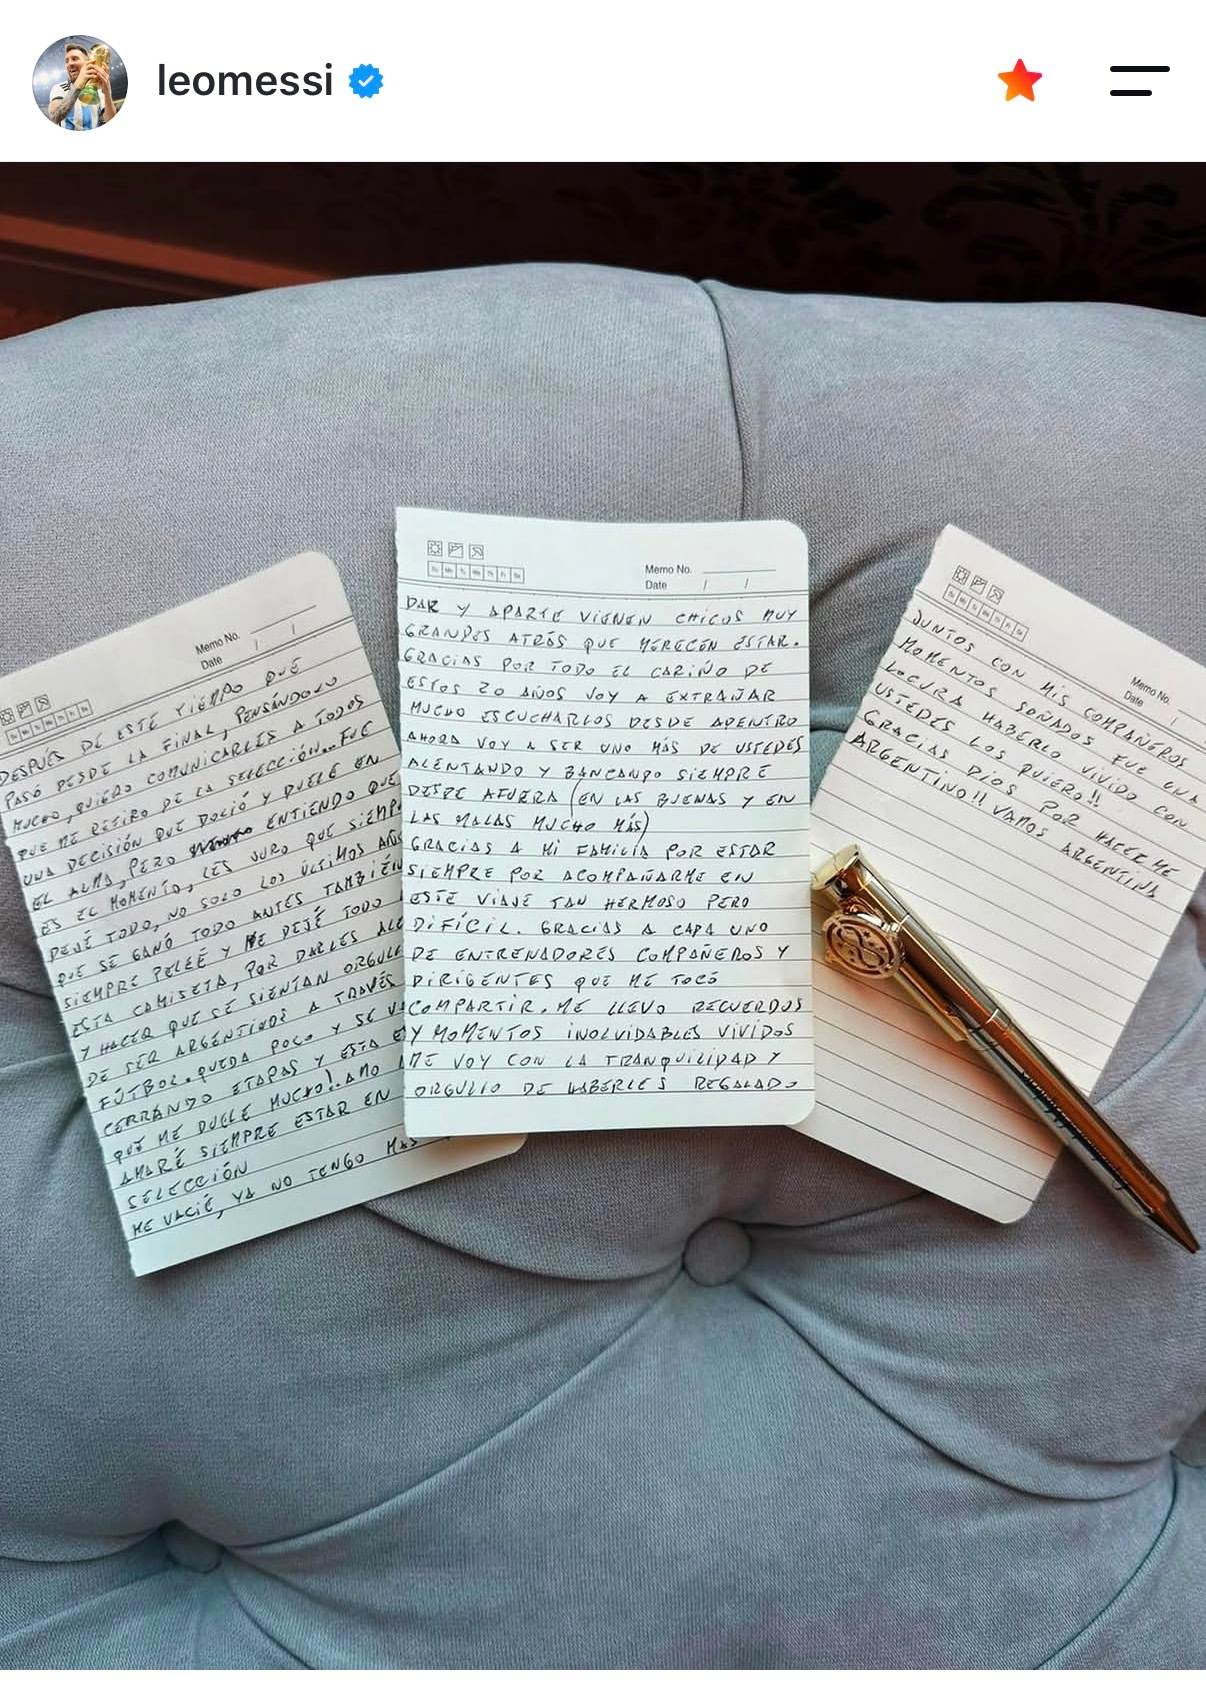 leomessi
Memo No.
Date / /
DESPUÉS DE ESTE TIEMPO QUE
PASÓ DESDE LA FINAL, PENSÁNDOLO
MUCHO, QUIERO COMUNICARLES A TODOS
QUE ME RETIRO DE LA SELECCIÓN... FUE
UNA DECISIÓN QUE DOLIÓ Y DUELE EN
EL ALMA, PERO ENTIENDO QUE
ES EL MOMENTO, LES JURO QUE SIEMP
DEJÉ TODO, NO SOLO LOS ÚLTIMOS AÑOS
QUE SE GANÓ TODO ANTES TAMBIÉN
SIEMPRE PELEÉ Y ME DEJÉ TODO
ESTA CAMISETA, POR DARLES ALE
Y HACER QUE SE SIENTAN ORGULL
DE SER ARGENTINOS A TRAVÉS
FÚTBOL. QUEDA POCO Y SE V
CERRANDO ETAPAS Y ESTA E
QUE ME DUELE MUCHO!. AMO
AMARÉ SIEMPRE ESTAR EN
SELECCIÓN
ME VACIÉ, YA NO TENGO MAS
Memo No.
Date / /
DAR Y APARTE VIENEN CHICOS MUY
GRANDES ATRÁS QUE MERECEN ESTAR.
GRACIAS POR TODO EL CARIÑO DE
ESTOS 20 AÑOS VOY A EXTRAÑAR
MUCHO ESCUCHARLOS DESDE ADENTRO
AHORA VOY A SER UNO MÁS DE USTEDES
ALENTANDO Y BANCANDO SIEMPRE
DESDE AFUERA (EN LAS BUENAS Y EN
LAS MALAS MUCHO MÁS)
GRACIAS A MI FAMILIA POR ESTAR
SIEMPRE POR ACOMPAÑARME EN
ESTE VIAJE TAN HERMOSO PERO
DIFÍCIL. GRACIAS A CADA UNO
DE ENTRENADORES COMPAÑEROS Y
DIRIGENTES QUE ME TOCÓ
COMPARTIR. ME LLEVO RECUERDOS
Y MOMENTOS INOLVIDABLES VIVIDOS
ME VOY CON LA TRANQUILIDAD Y
ORGULLO DE HABERLES REGALADO
Memo No.
Date /
JUNTOS CON MIS COMPAÑEROS
MOMENTOS SOÑADOS FUE UNA
LOCURA HABERLO VIVIDO CON
USTEDES LOS QUIERO!!
GRACIAS DIOS POR HACERME
ARGENTINO!! VAMOS ARGENTINA